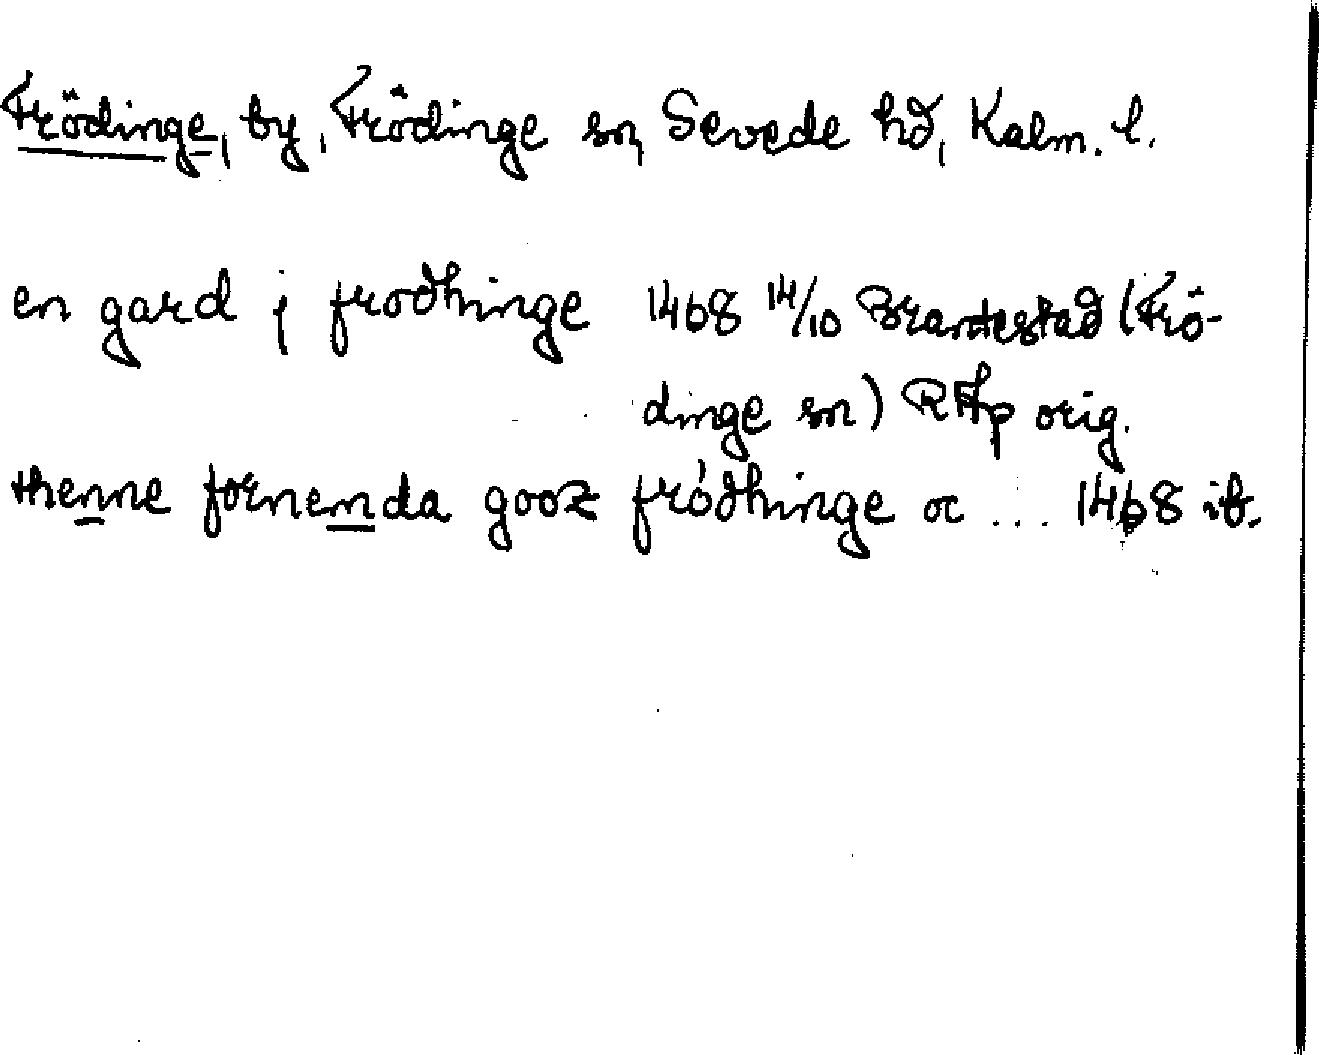 Frödinge, by, Frödinge sn, Sevede hd, Kalm. l.
en gard j frodhinge 1468 14/10 Brantestad (Frö-
dinge sn) RAp orig.
thenne fornemda gooz fródhinge oc ... 1468 ib.